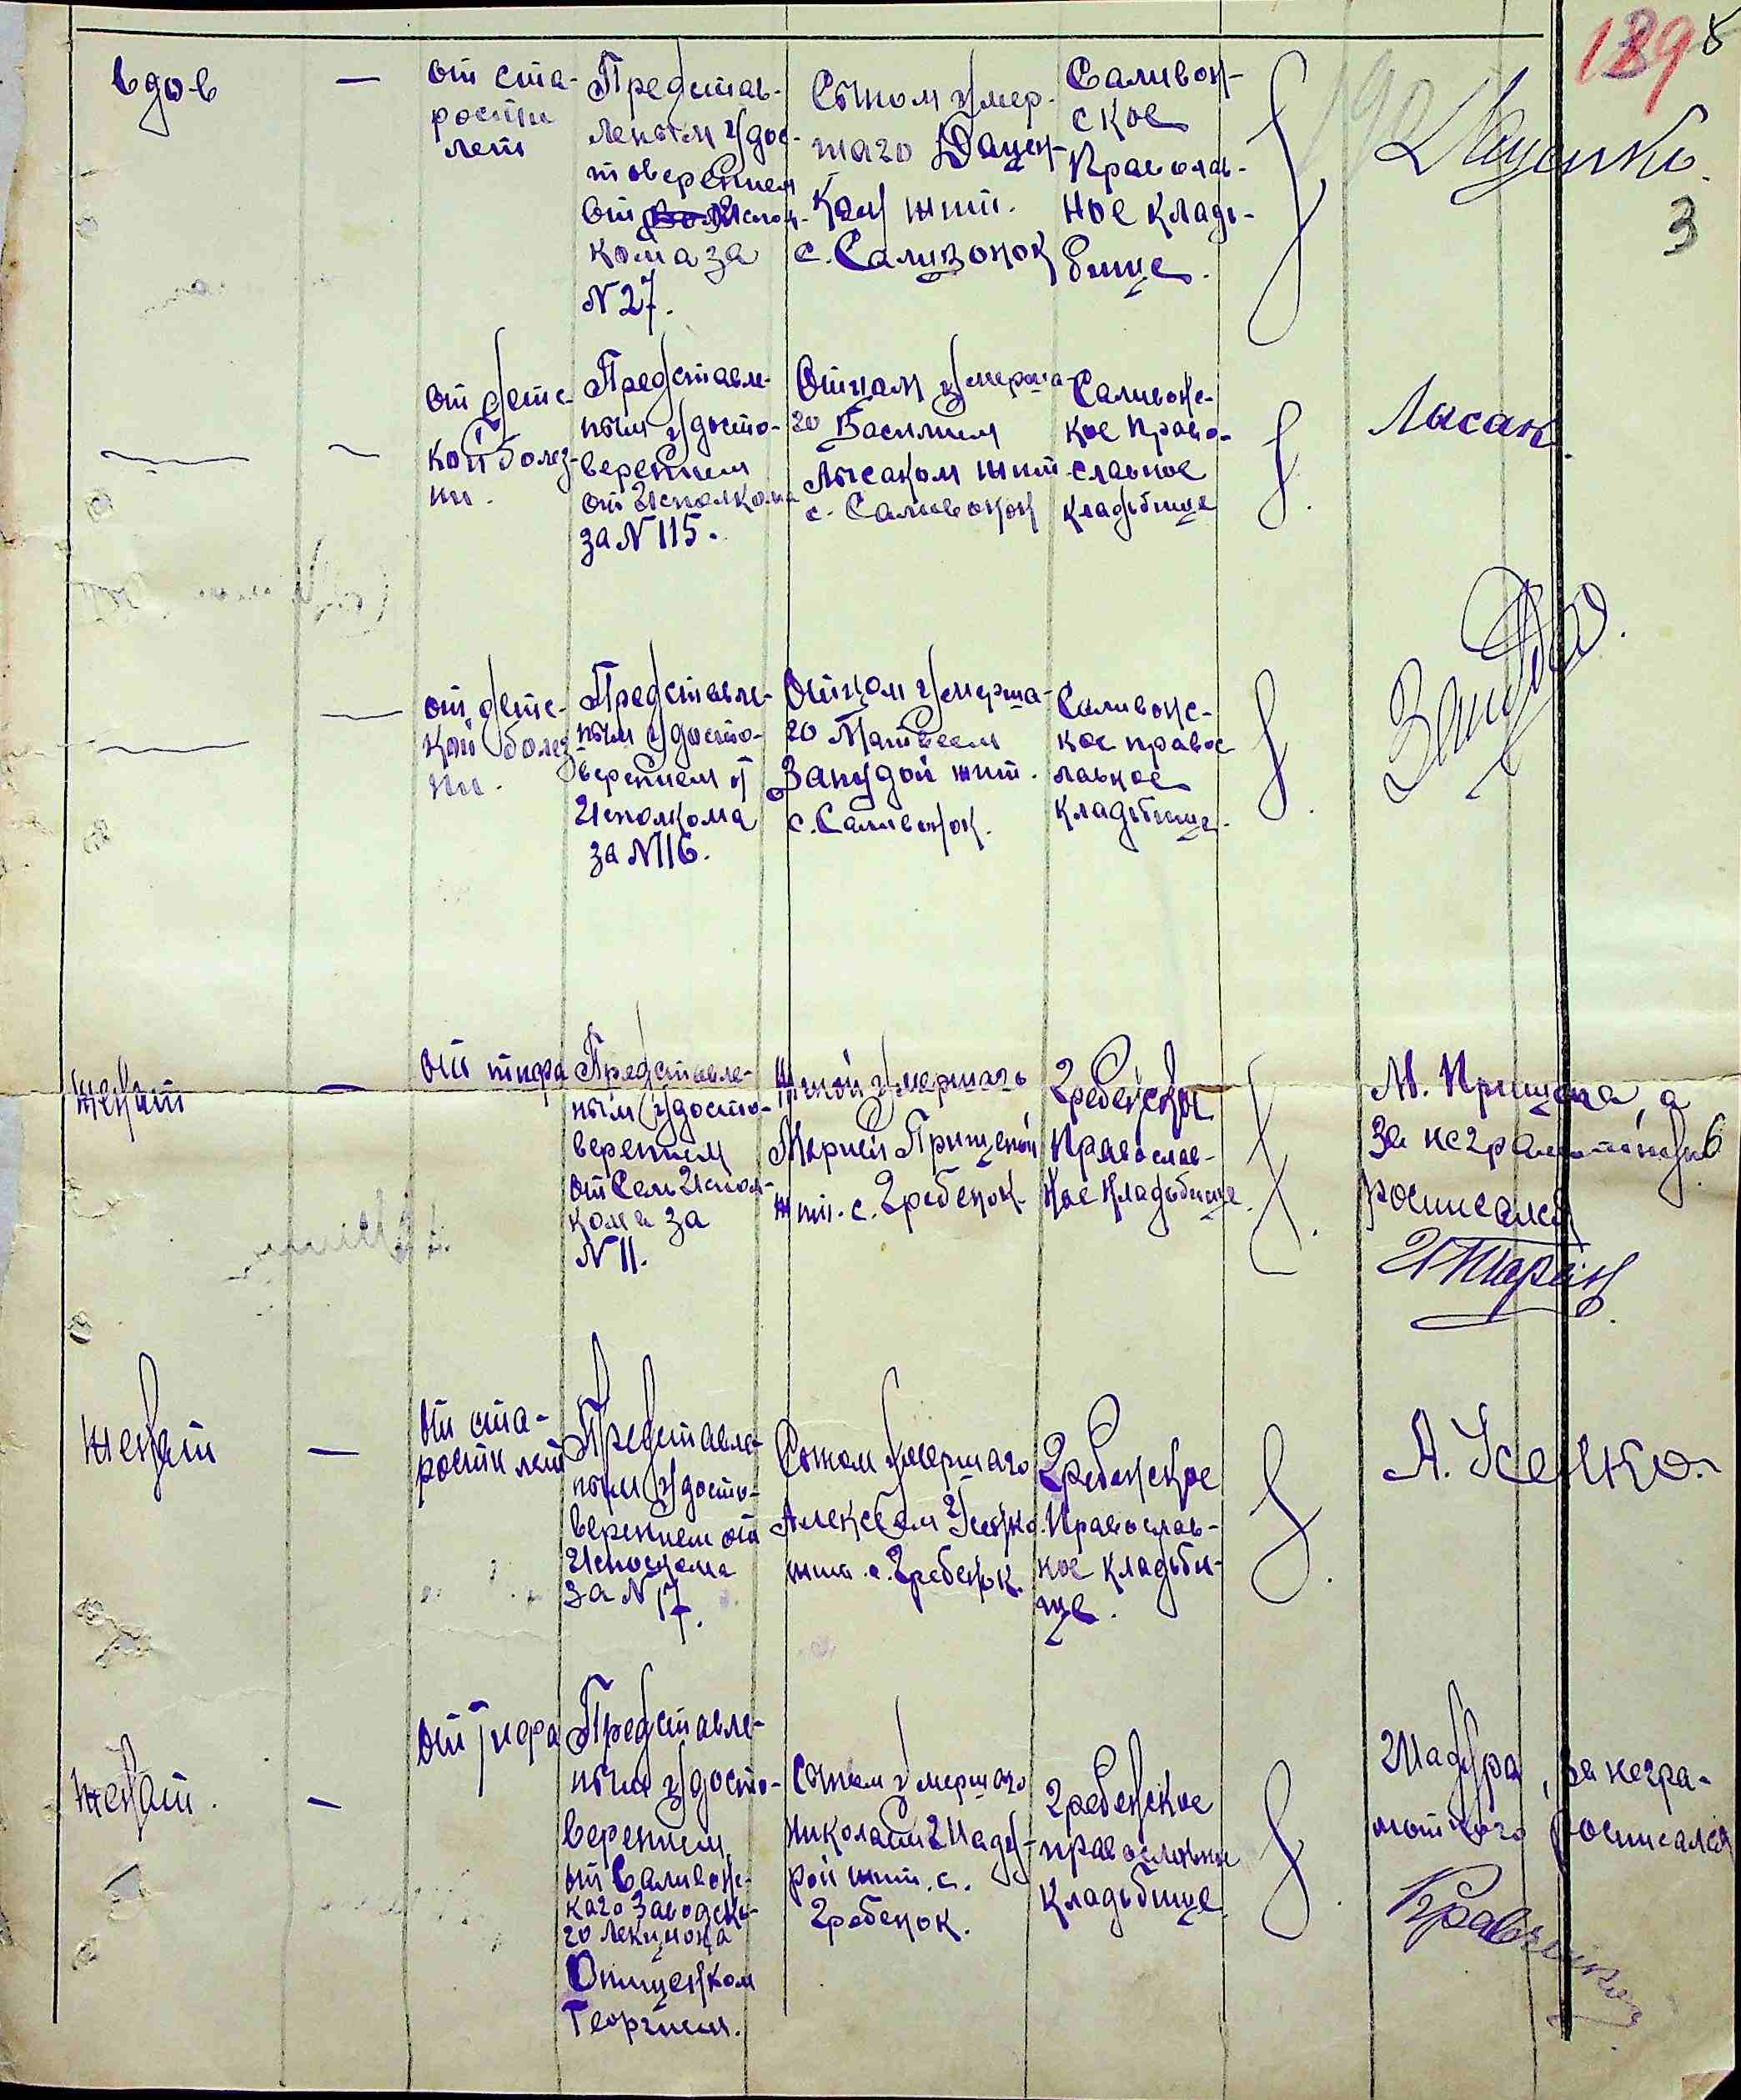 189
8
3
вдов
—
от ста-
рости
лет
Представ-
леным удос-
товерением
от Испол-
кома за
N 27.
Сыном умер-
шаго Дацен-
ком жит.
с. Саливонок
Саливон-
ское
Православ-
ное кладь-
бище.
Даценко.
—
от детс-
кой болез-
ни.
Представле-
ным удосто-
верением
от Исполкома
за N 115.
Отцам умерша-
го Василием
Лысаком жит
с. Саливонок
Саливонс-
кое право-
славное
кладьбище
Лысак
—
от детс-
кой болез-
ни.
Представле-
ным удосто-
верением от
Исполкома
за N 116.
Отцом умерша-
го Матвеем
Занудой жит.
с. Саливонок.
Саливонс-
кое правос-
лавное
кладьбище.
женат
—
от тифа
Представле-
ным удосто-
верением
от Сель Испол-
кома за
N 11.
Женой умершаго
Марией Прищепой
жит. с. Гребенок.
Гребенское
Православ-
ное кладьбище.
М. Прищепа, а
за неграмотную
росписался
И Таран
женат
—
от ста-
рости лет
Представле-
ным удосто-
верением от
Исполкома
за N 17.
Сыном умершаго
Алексеем Усенко.
жит. с. Гребенок.
Гребенское
Православ-
ное кладьби-
ще.
А. Усенко.
женат.
—
от тифа
Представле-
ным удосто-
верением
от Саливонс-
каго Заводско-
го Лекпома
Онищенком
Георгием.
Сыном умершаго
Николаем Шаду-
рой жит. с.
Гребенок.
Гребенское
православное
кладьбище
Шадура, за негра-
мотного росписался
Кравченко